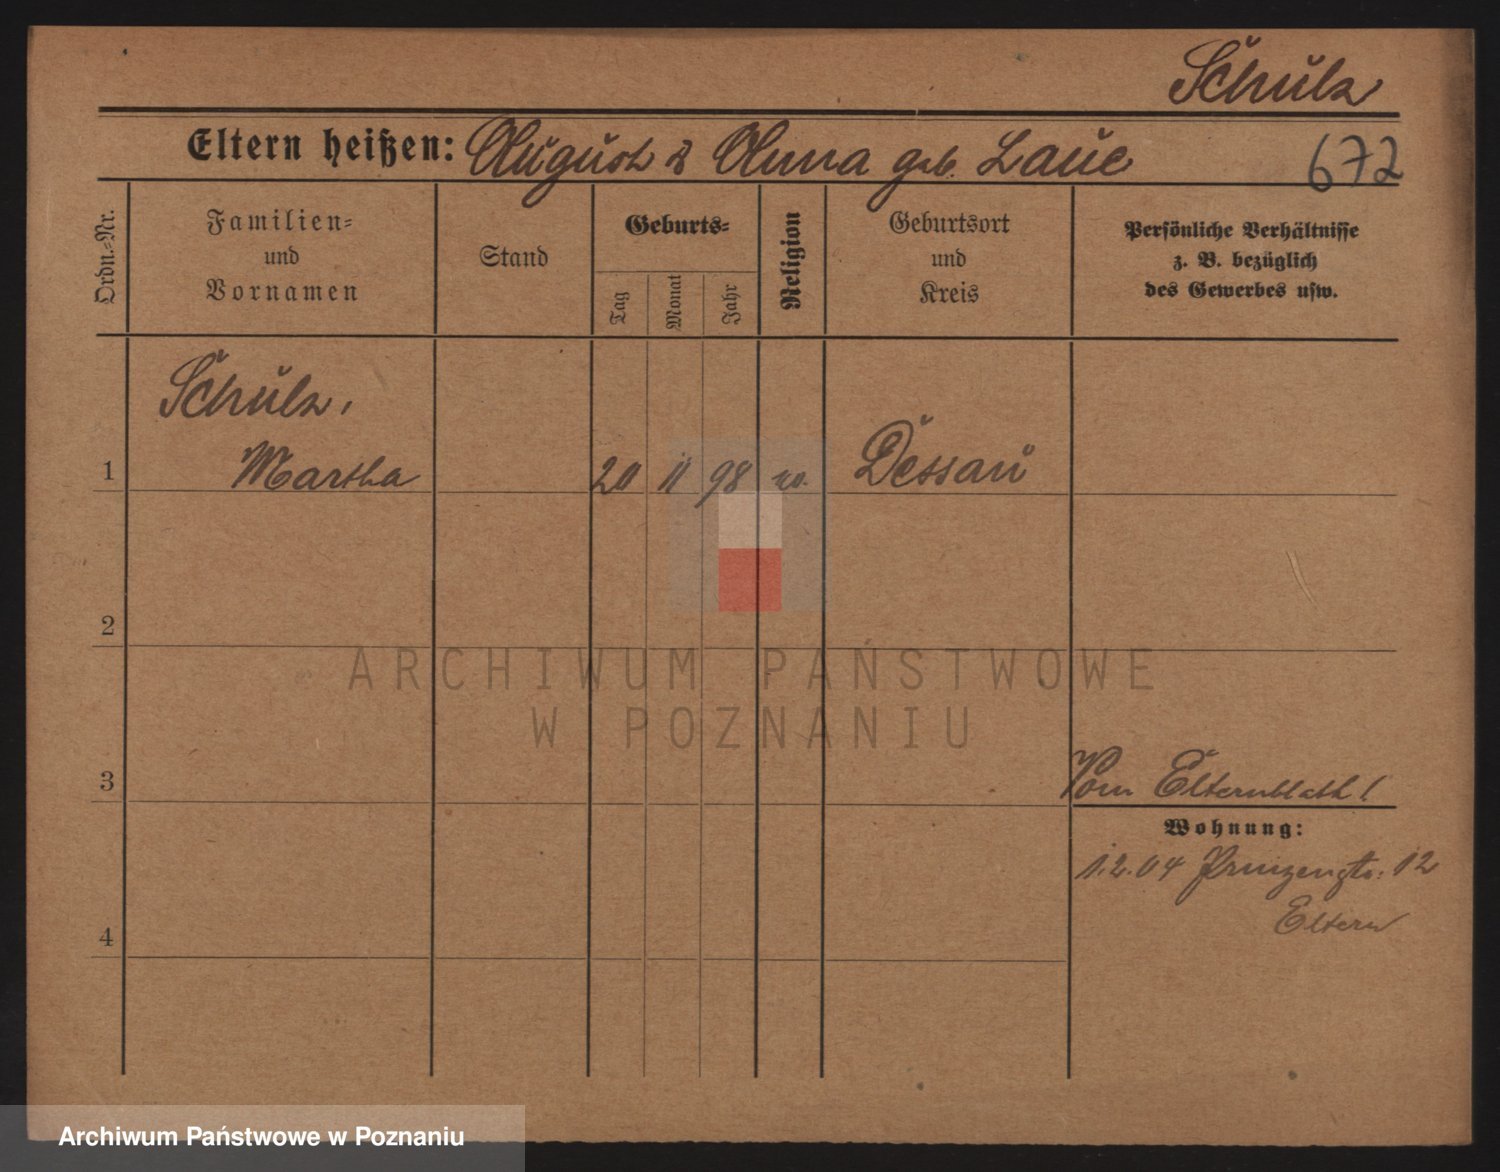 Schulz
Eltern heißen: August & Anna geb. Laue
672
Ordn.-Nr.
Familien-
und
Vornamen
Stand
Geburts-
Tag
Monat
Jahr
Religion
Geburtsort
und
Kreis
Persönliche Verhältnisse
z. B. bezüglich
des Gewerbes usw.
Schulz,
1 Martha 20 11 98 Dessau
2
ARCHIWUM PAŃSTWOWE
W POZNANIU
3
Vom Elternblatt!
Wohnung:
1.2.04 Prinzenstr. 12
Eltern
4
Archiwum Państwowe w Poznaniu